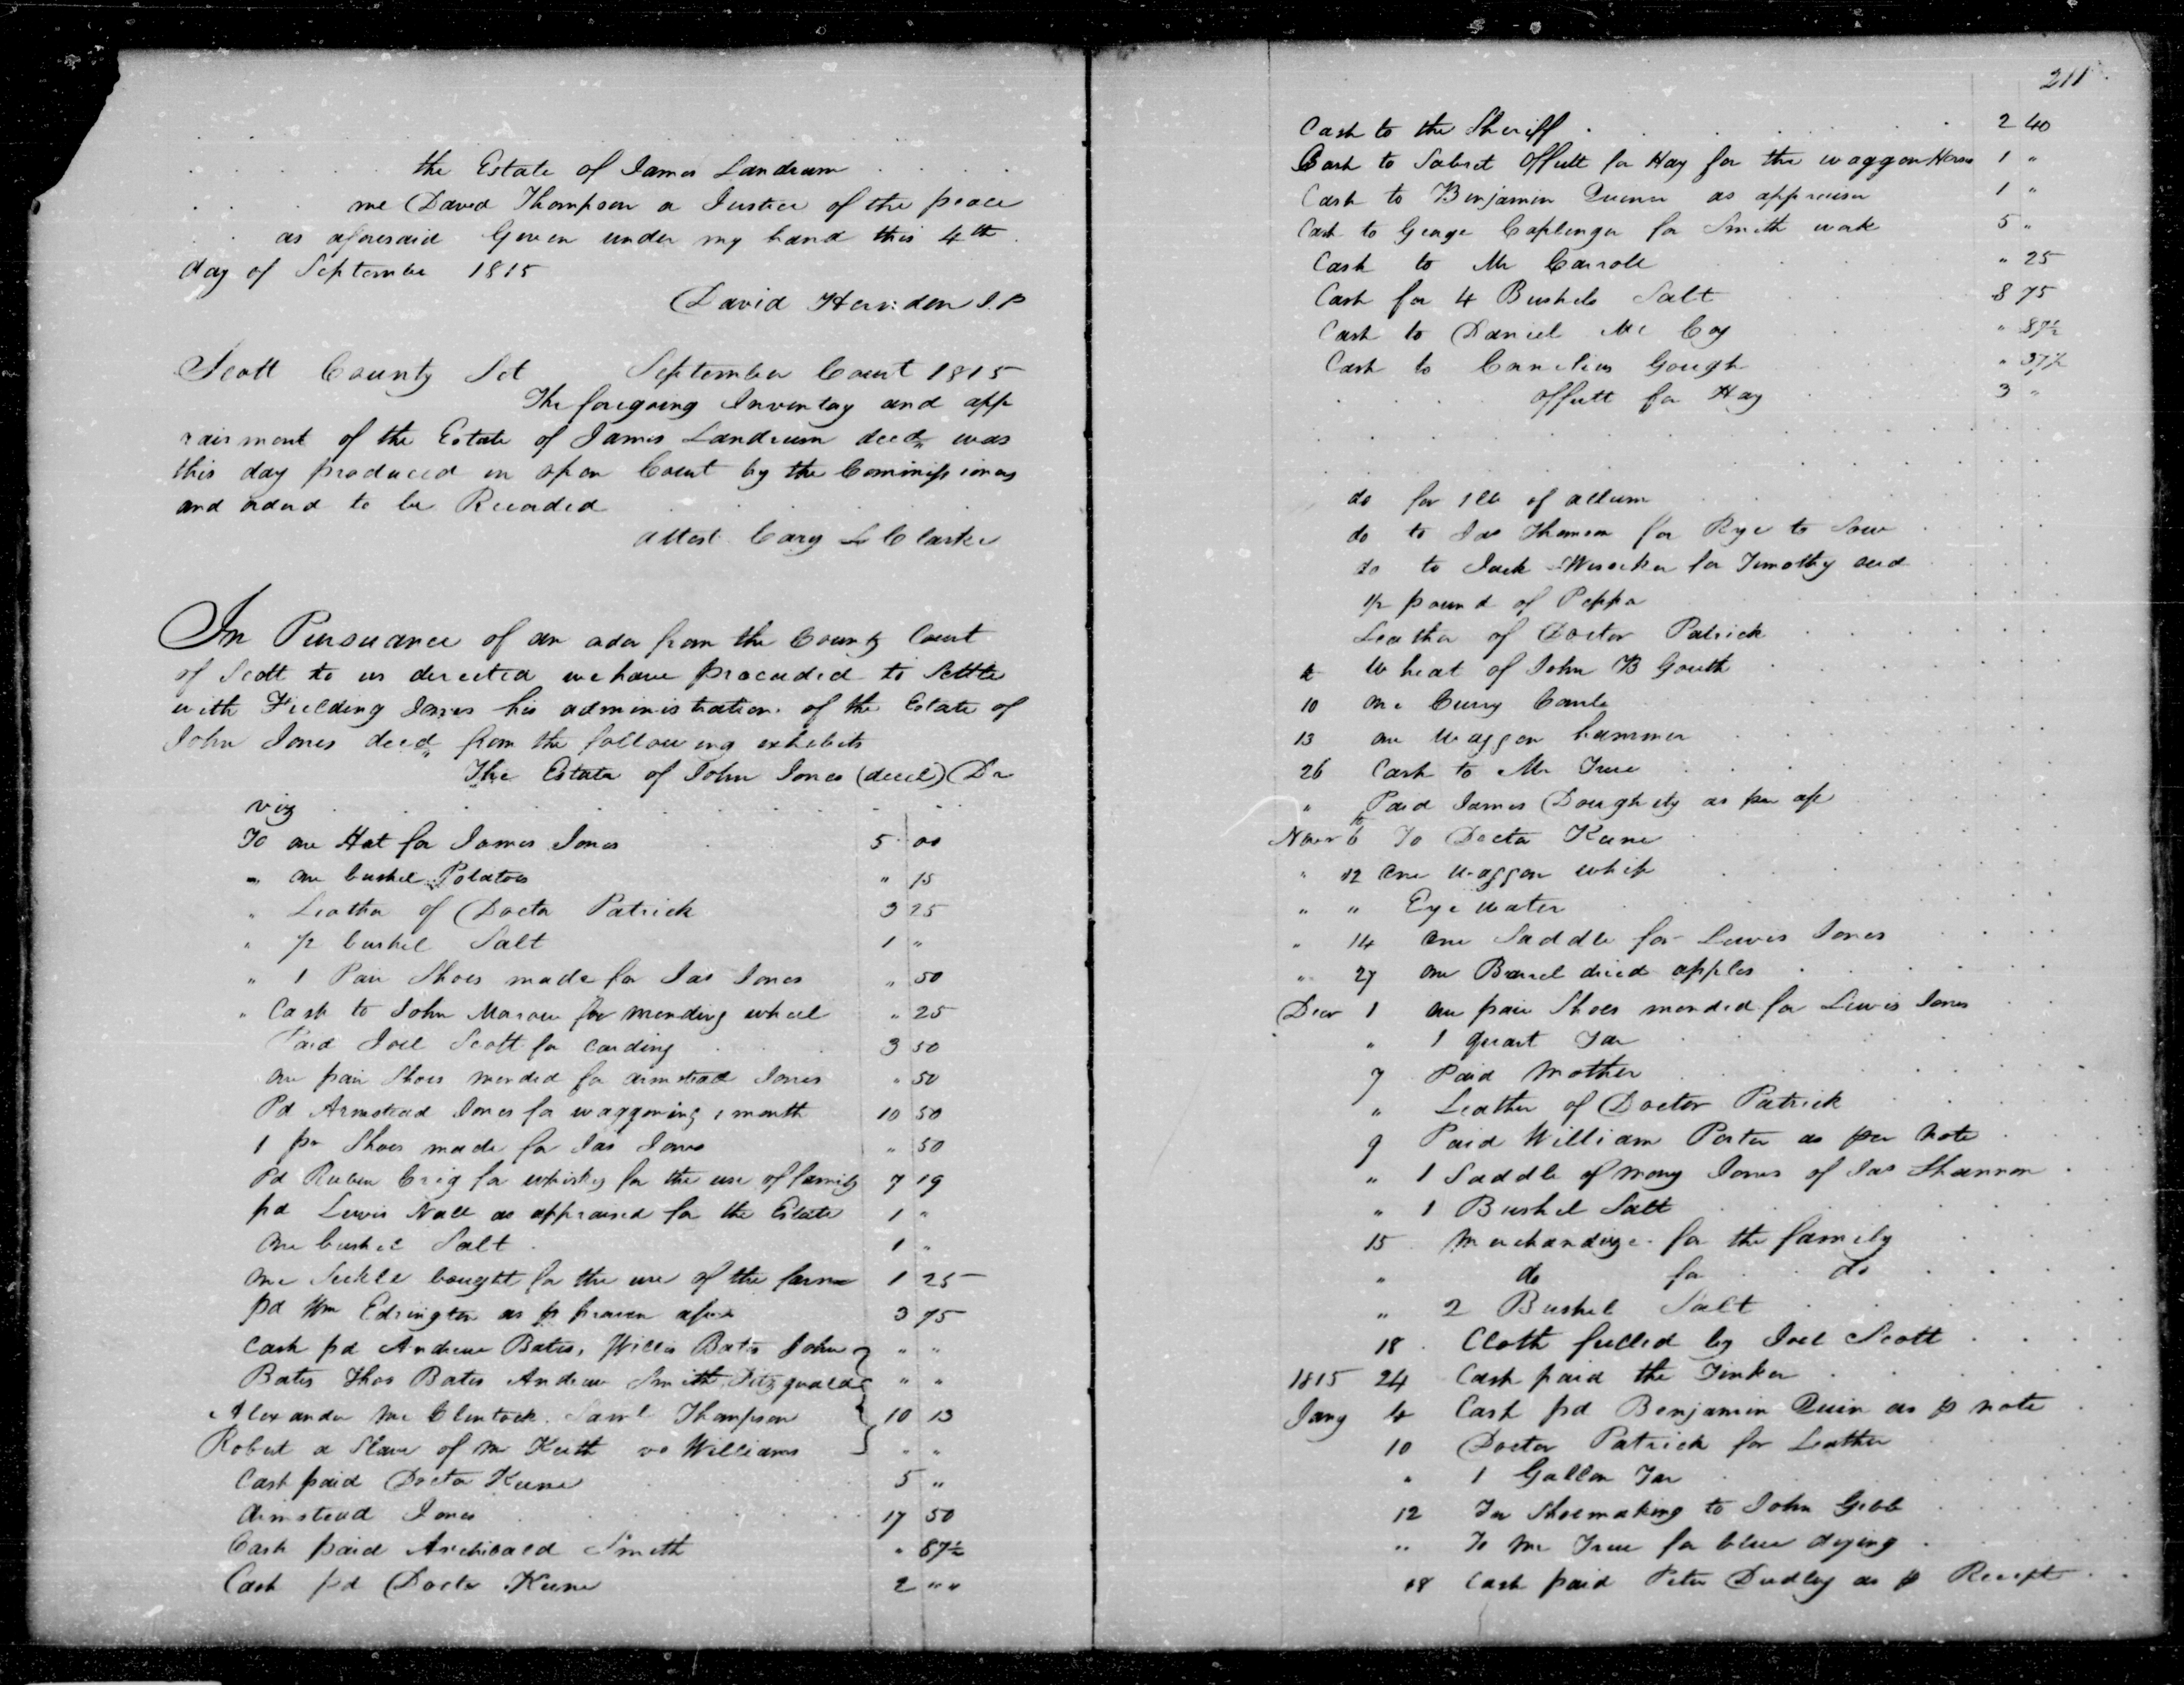 the Estate of James Landrum
me David Thompson a Justice of the peace
as aforesaid Given under my hand this 4th
day of September 1815
David Herndon J.P
Scott County Sct September Court 1815
The foregoing Inventory and app
raisment of the Estate of James Landrum decd was
this day produced in open Court by the Commissioners
and orderd to be Recorded
attest Cary L Clarke
In Pursuance of an order from the County Court
of Scott to us directed we have proceeded to Settle
with Fielding Jones his administration of the Estate of
John Jones decd from the following exhibits
The Estate of John Jones (decd) Dr
viz
To one Hat for James Jones 5 00
" one bushel Potatoes " 15
" Leather of Doctor Patrick 3 25
" 1/2 bushel Salt 1 "
" 1 Pair Shoes made for Jas Jones " 50
" Cash to John Marow for mending wheel " 25
Paid Joel Scott for carding 3 50
one pair Shoes mended for armstead Jones " 50
Pd Armstead Jones for waggoning 1 month 10 50
1 pr Shoes made for Jas Jones " 50
Pd Ruben Crig for whiskey for the use of family 7 19
pd Lewis Nall as appraised for the Estate 1 "
One bushel Salt 1 "
one Sickle bought for the use of the farm 1 25
pd Wm Edrington as p proven 3 75
Cash pd Andrew Bates, Willis Bates John " "
Bates Thos Bates Andrew Smith Fitzgerald " "
Alexander McClintock Saml Thompson 10 13
Robert a Slave of Mr Keith Williams " "
Cash paid Doctor Keene 5 "
Armstead Jones 17 50
Cash paid Archibald Smith " 87½
Cash pd Doctor Keene 2 " "
211
Cash to the Sheriff 2 40
Cash to Offutt for Hay for the waggon Horses 1 "
Cash to Benjamin as appraiser 1 "
Cash to George Coplinger for Smith work 5 "
Cash to Mr Carroll " 25
Cash for 4 Bushels Salt 8 75
Cash to Daniel McCoy " 87½
Cash to Cornelius Gough " 37½
Offutt for Hay 3 "
do for 1 lb of allum
do to Jas Thomson for Rye to Sow
do to Jack for Timothy seed
1/2 pound of Pepper
Leather of Doctor Patrick
Wheat of John B Gouth
10 one Curry Comb
13 one Waggon hammer
26 Cash to Mr True
" Paid James Dougherty as per
Novr 6 To Doctor Keene
" 12 One waggon whip
" " Eye water
" 14 One Saddle for Lewis Jones
" 27 one Barrel dried apples
Decr 1 one pair Shoes mended for Lewis Jones
" 1 quart Tar
7 Paid Mother
" Leather of Doctor Patrick
9 Paid William Porter as per Note
" 1 Saddle of Jones of Jas Shannon
" 1 Bushel Salt
15 Merchandize for the family
" do for do
" 2 Bushel Salt
18 Cloth fulled by Joel Scott
1815 24 Cash paid the Tinker
Jany 4 Cash pd Benjamin Quin as p note
10 Doctor Patrick for Leather
" 1 Gallon Tar
12 For Shoemaking to John Gibb
" To Mr True for blue dying
18 Cash paid Peter Dudley as p Receipt